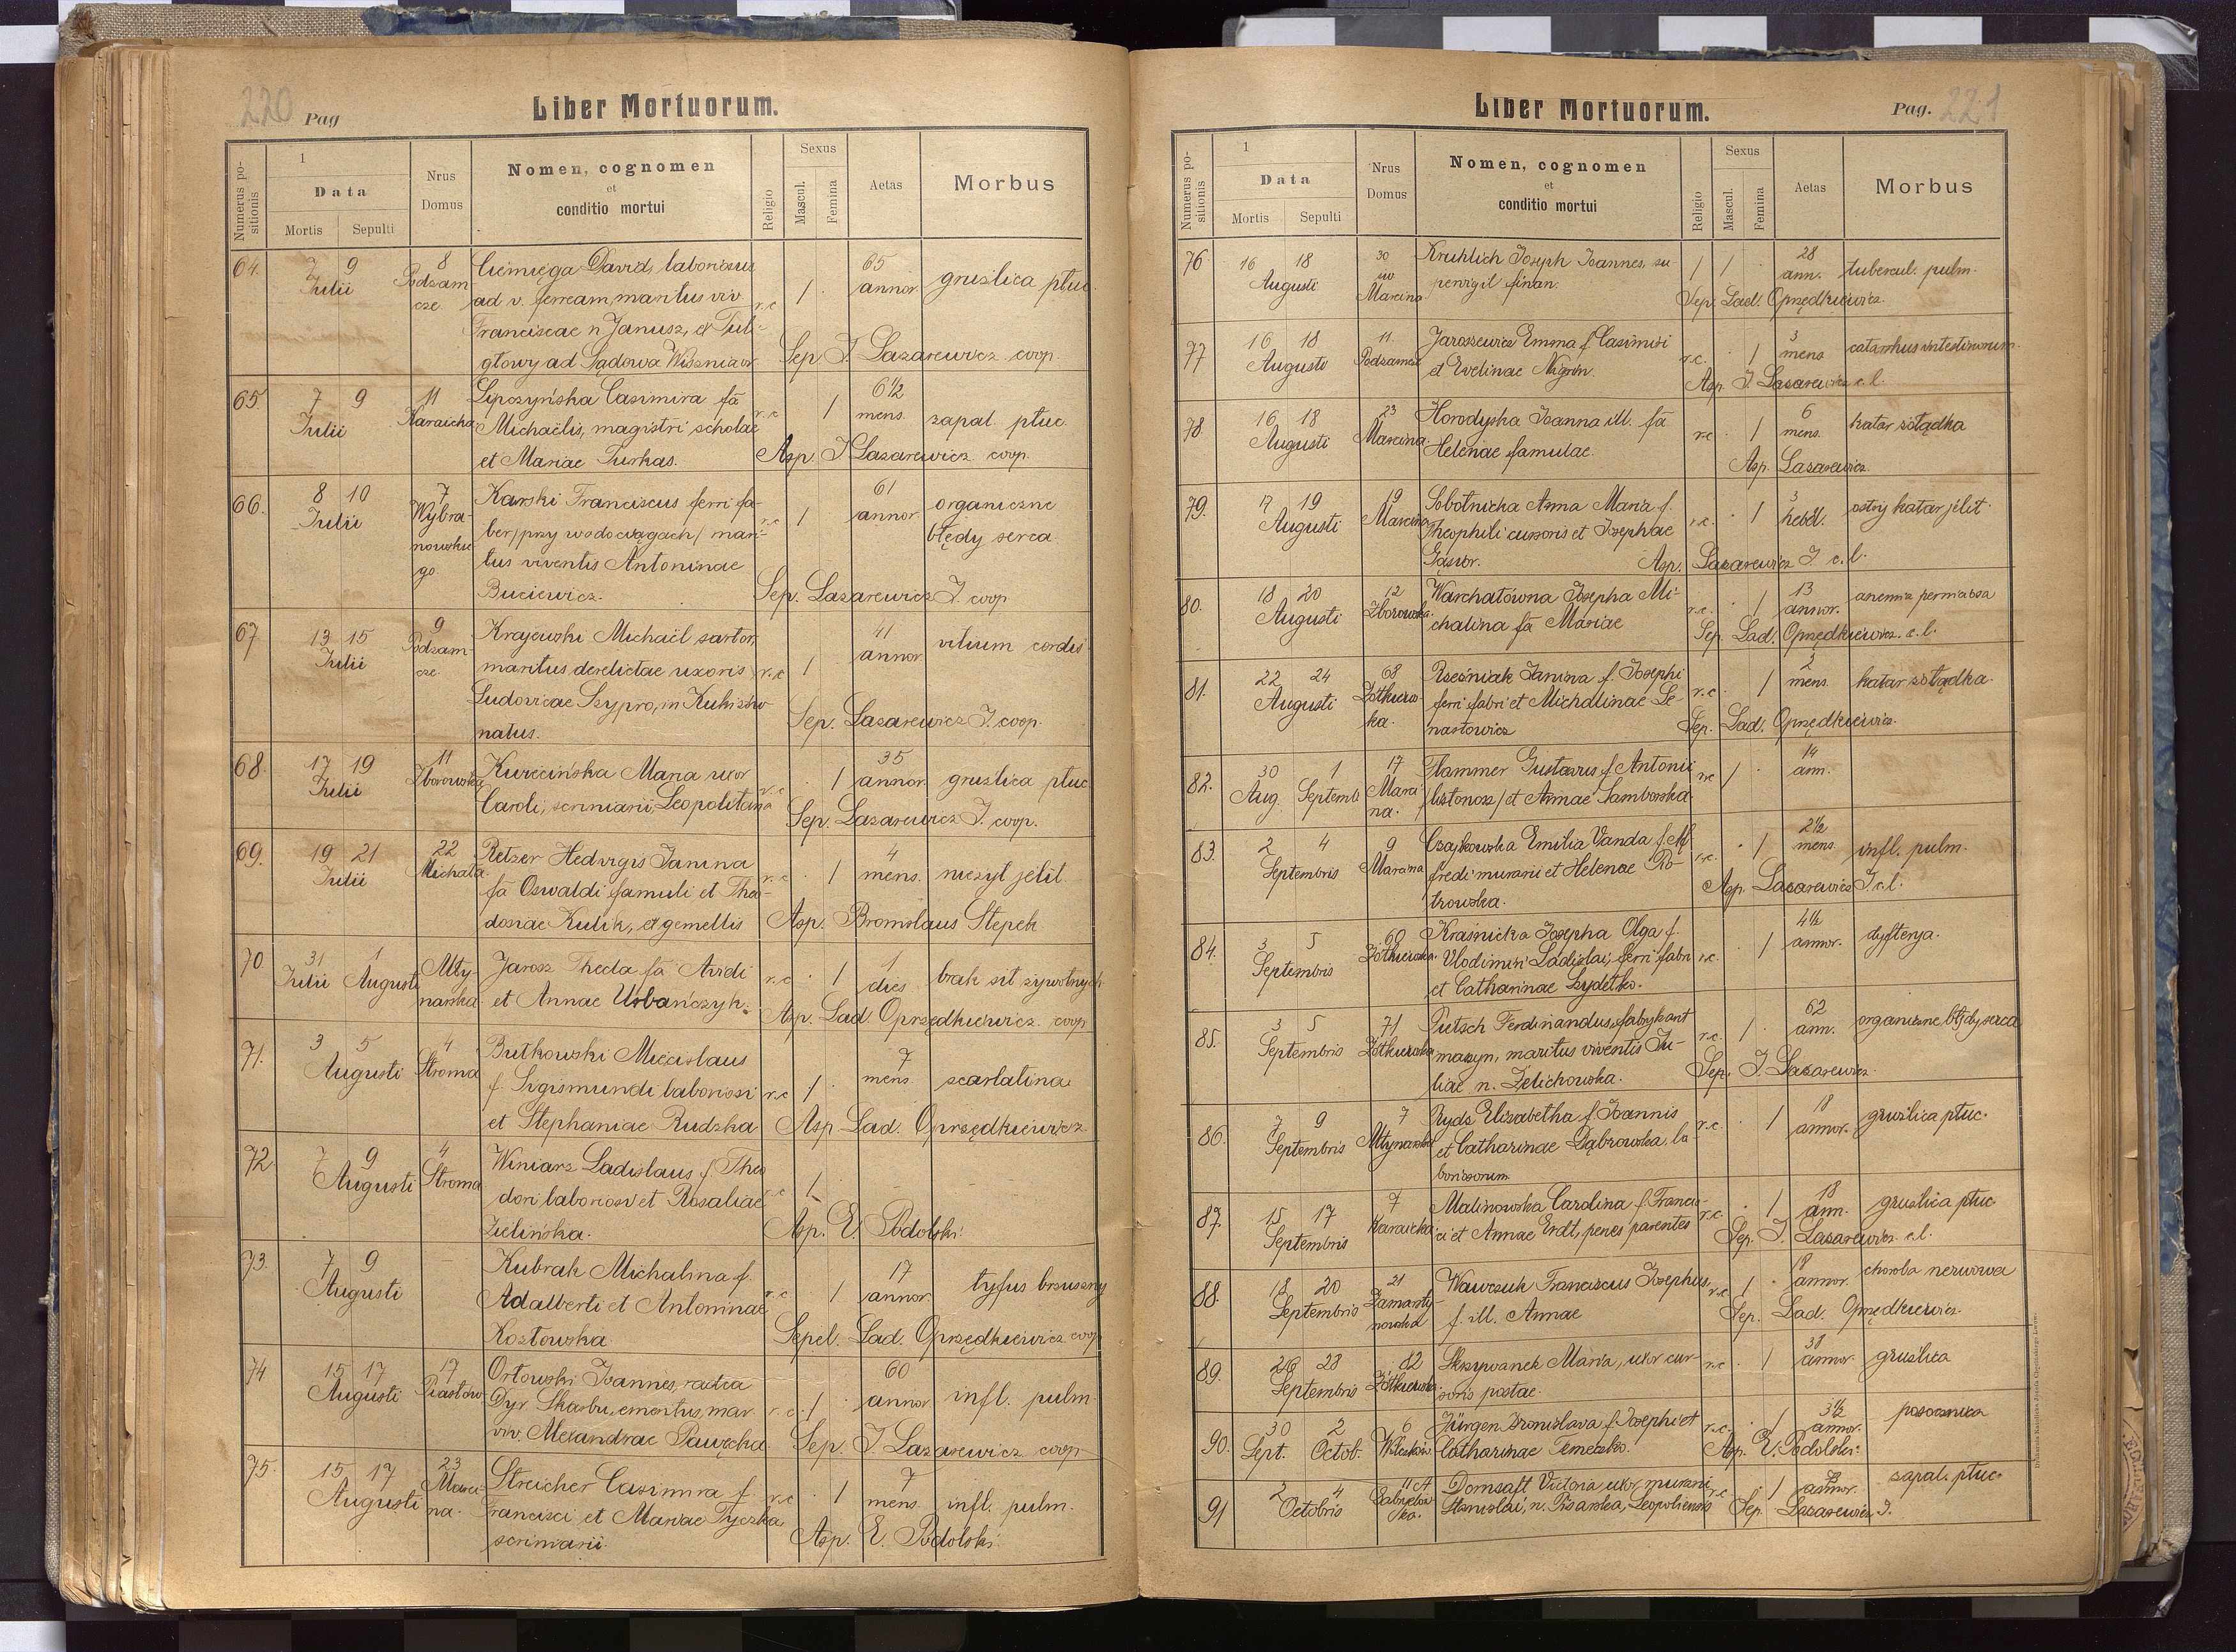 220 Pag
Liber Mortuorum.
Numerus positionis
1
Data
Mortis Sepulti
Nrus Domus
Nomen, cognomen
et
conditio mortui
Religio
Sexus
Mascul. Femina
Aetas
Morbus
64. 7 9 8 Ciemięga David, laboriosus 65
Julii Podzam- ad v. ferream, maritus viv. r.c 1 annor. gruźlica płuc.
cze Franciscae n Janusz, ex Tul-
głowy ad Sądowa Wiszniaor. Sep. J. Lazarewicz coop.
65. 7 9 11 Lipczyńska Casimira fa 6½
Julii Karaicka Michaëlis, magistri scholae r.c 1 mens. zapal. płuc.
et Mariae Turkas. Asp. J Lazarewicz coop.
66. 8 10 7 Karski Franciscus ferri fa- 61
Julii Wybra- ber /przy wodociągach/ mari- r.c 1 annor. organiczne
nowskie tus viventis Antoninae błędy serca
go. Buciewicz. Sep. Lazarewicz J. coop
67 13 15 9 Krajewski Michaël sartor, 41
Julii Podzam maritus derelictae uxoris r.c 1 annor. vitium cordis
cze. Ludovicae Szypro, in Kukizów
natus. Sep. Lazarewicz J. coop.
68. 17 19 11 Kwiecińska Maria uxor 35
Julii Zborowska Caroli, scriniarii, Leopolitana r.c 1 annor. gruźlica płuc
Sep. Lazarewicz J. coop.
69. 19 21 22 Retzer Hedvigis Janina 4
Julii Michała fa Oswaldi famuli et Theo- r.c 1 mens. nieżyt jelit.
dosiae Kulik, ex gemellis Asp. Bronislaus Stepek
70. 31 1 Mły- Jarosz Thecla fa Avidi 1
Julii Augusti narska et Annae Urbańczyk. r.c 1 dies brak sił żywotnych
Asp. Lad. Oprzędkiewicz. coop
71. 3 5 4 Butkowski Miecislaus 7
Augusti Stroma f. Sigismundi laboriosi r.c 1 mens. scarlatina
et Stephaniae Rudzka Asp Lad. Oprzędkiewicz
72. 7 9 4 Winiarz Ladislaus f. Theo
Augusti Stroma dori laboriosi et Rosaliae r.c 1
Zielińska. Asp. E. Podolski
73. 7 9 Kubrak Michalina f. 17
Augusti Adalberti et Antoninae r.c 1 annor. tyfus brzuszny
Kozłowska Sepel. Lad. Oprzędkiewicz coop
74 15 17 17 Orłowski Joannes, radca 60
Augusti Piastów Dyr Skarbu, emeritus, mar r.c. 1 annor infl. pulm.
viv. Alexandrae Pawęcka. Sep. J. Lazarewicz coop
75. 15 17 23 Streicher Casimira f. 7
Augusti Marci- Francisci et Mariae Tyczka, r.c 1 mens. infl. pulm.
na. scriniarii Asp. E. Podolski
Liber Mortuorum.
Pag. 221
Numerus positionis
1
Data
Mortis Sepulti
Nrus Domus
Nomen, cognomen
et
conditio mortui
Religio
Sexus
Mascul. Femina
Aetas
Morbus
76 16 18 30 Kruhlich Joseph Joannes, su- 28
Augusti św Marcina pervigil finan. 1 1 ann. tubercul. pulm.
Sep. Lad. Oprzędkiewicz.
77 16 18 11. Jaroszewicz Emma f. Casimiri 3
Augusti Podzamcze et Evelinae Nigrin. r.c. 1 mens catarrhus intestinorum.
Asp. J Lazarewicz c. l.
78. 16 18 23 Horodyska Joanna ill. fa 6
Augusti Marcina. Helenae famulae. r.c 1 mens. katar żołądka
Asp. Lazarewicz
79. 17 19 19 Sobotnicka Anna Maria f. 3
Augusti Marcina Theophili cursoris et Josephae r.c. 1 hebd. ostry katar jelit.
Gąsior. Asp. Lazarewicz J. c. l.
80. 18 20 12 Warchałówna Josepha Mi- 13
Augusti Zborowska. chalina fa Mariae r.c. 1 annor. anemia perniciosa
Sep. Lad. Oprzędkiewicz. c. l.
81. 22 24 68 Rześniak Janina f. Josephi 2
Augusti Żółkiews- ferri fabri et Michalinae Se- r.c. 1 mens. katar żołądka.
ka. nastowicz Sep. Lad. Oprzędkiewicz.
82. 30 1 17 Flammer Gustavus f. Antonii 14
Aug. Septemb Marci- /listonosz/ et Annae Samborska. r.c 1 ann.
na.
83. 2 4 9 Czajkowska Emilia Vanda f. Al 2½
Septembris Marcina fredi murarii et Helenae Pio- r.c. 1 mens. infl. pulm.
trowska. Asp. Lazarewicz J c. l.
84. 3 5 60 Kraśnicka Josepha Olga f. 4½
Septembris Żółkiewska. Vlodimiri Ladislai, ferri fabri r.c. 1 annor. dyfterya.
et Catharinae Szydełko.
85. 3 5 71 Pietsch Ferdinandus, fabrykant 62
Septembris Żółkiewska maszyn, maritus viventis Ju- r.c. 1 ann. organiczne błędy serca
liae n. Zelichowska. Sep. J. Lazarewicz.
86. 7 9 7 Ryds Elisabetha f. Joannis 18
Septembris Młynarska et Catharinae Dąbrowska, la- r.c. 1 annor. gruźlica płuc.
boriosorum
87. 15 17 7 Malinowska Carolina f. Francis- 18
Septembris Karaicka ci et Annae Erdt, penes parentes r.c. 1 ann. gruźlica płuc
Sep. J. Lazarewicz c. l.
88. 18 20 21 Wawczuk Franciscus Josephus, 18
Septembris Zamarsty- f. ill. Annae r.c. 1 annor. choroba nerwowa
nowska Sep. Lad. Oprzędkiewicz.
89. 26 28 82 Skrzywanek Maria, uxor cur- 38
Septembris Żółkiewska. soris postae. r.c. 1 annor. gruźlica
90. 30 2 6 Jürgen Bronislava f. Josephi et 3½
Sept. Octob. Catharinae Temeczko. r.c. 1 annor. posocznica
Asp. E. Podolski.
91 2 4 11 A Domsaft Victoria uxor, murarii
Octobris Stanislai, n. Pisarska, Leopoliensis r.c 1 annor. zapal. płuc.
Sep. Lazarewicz J.